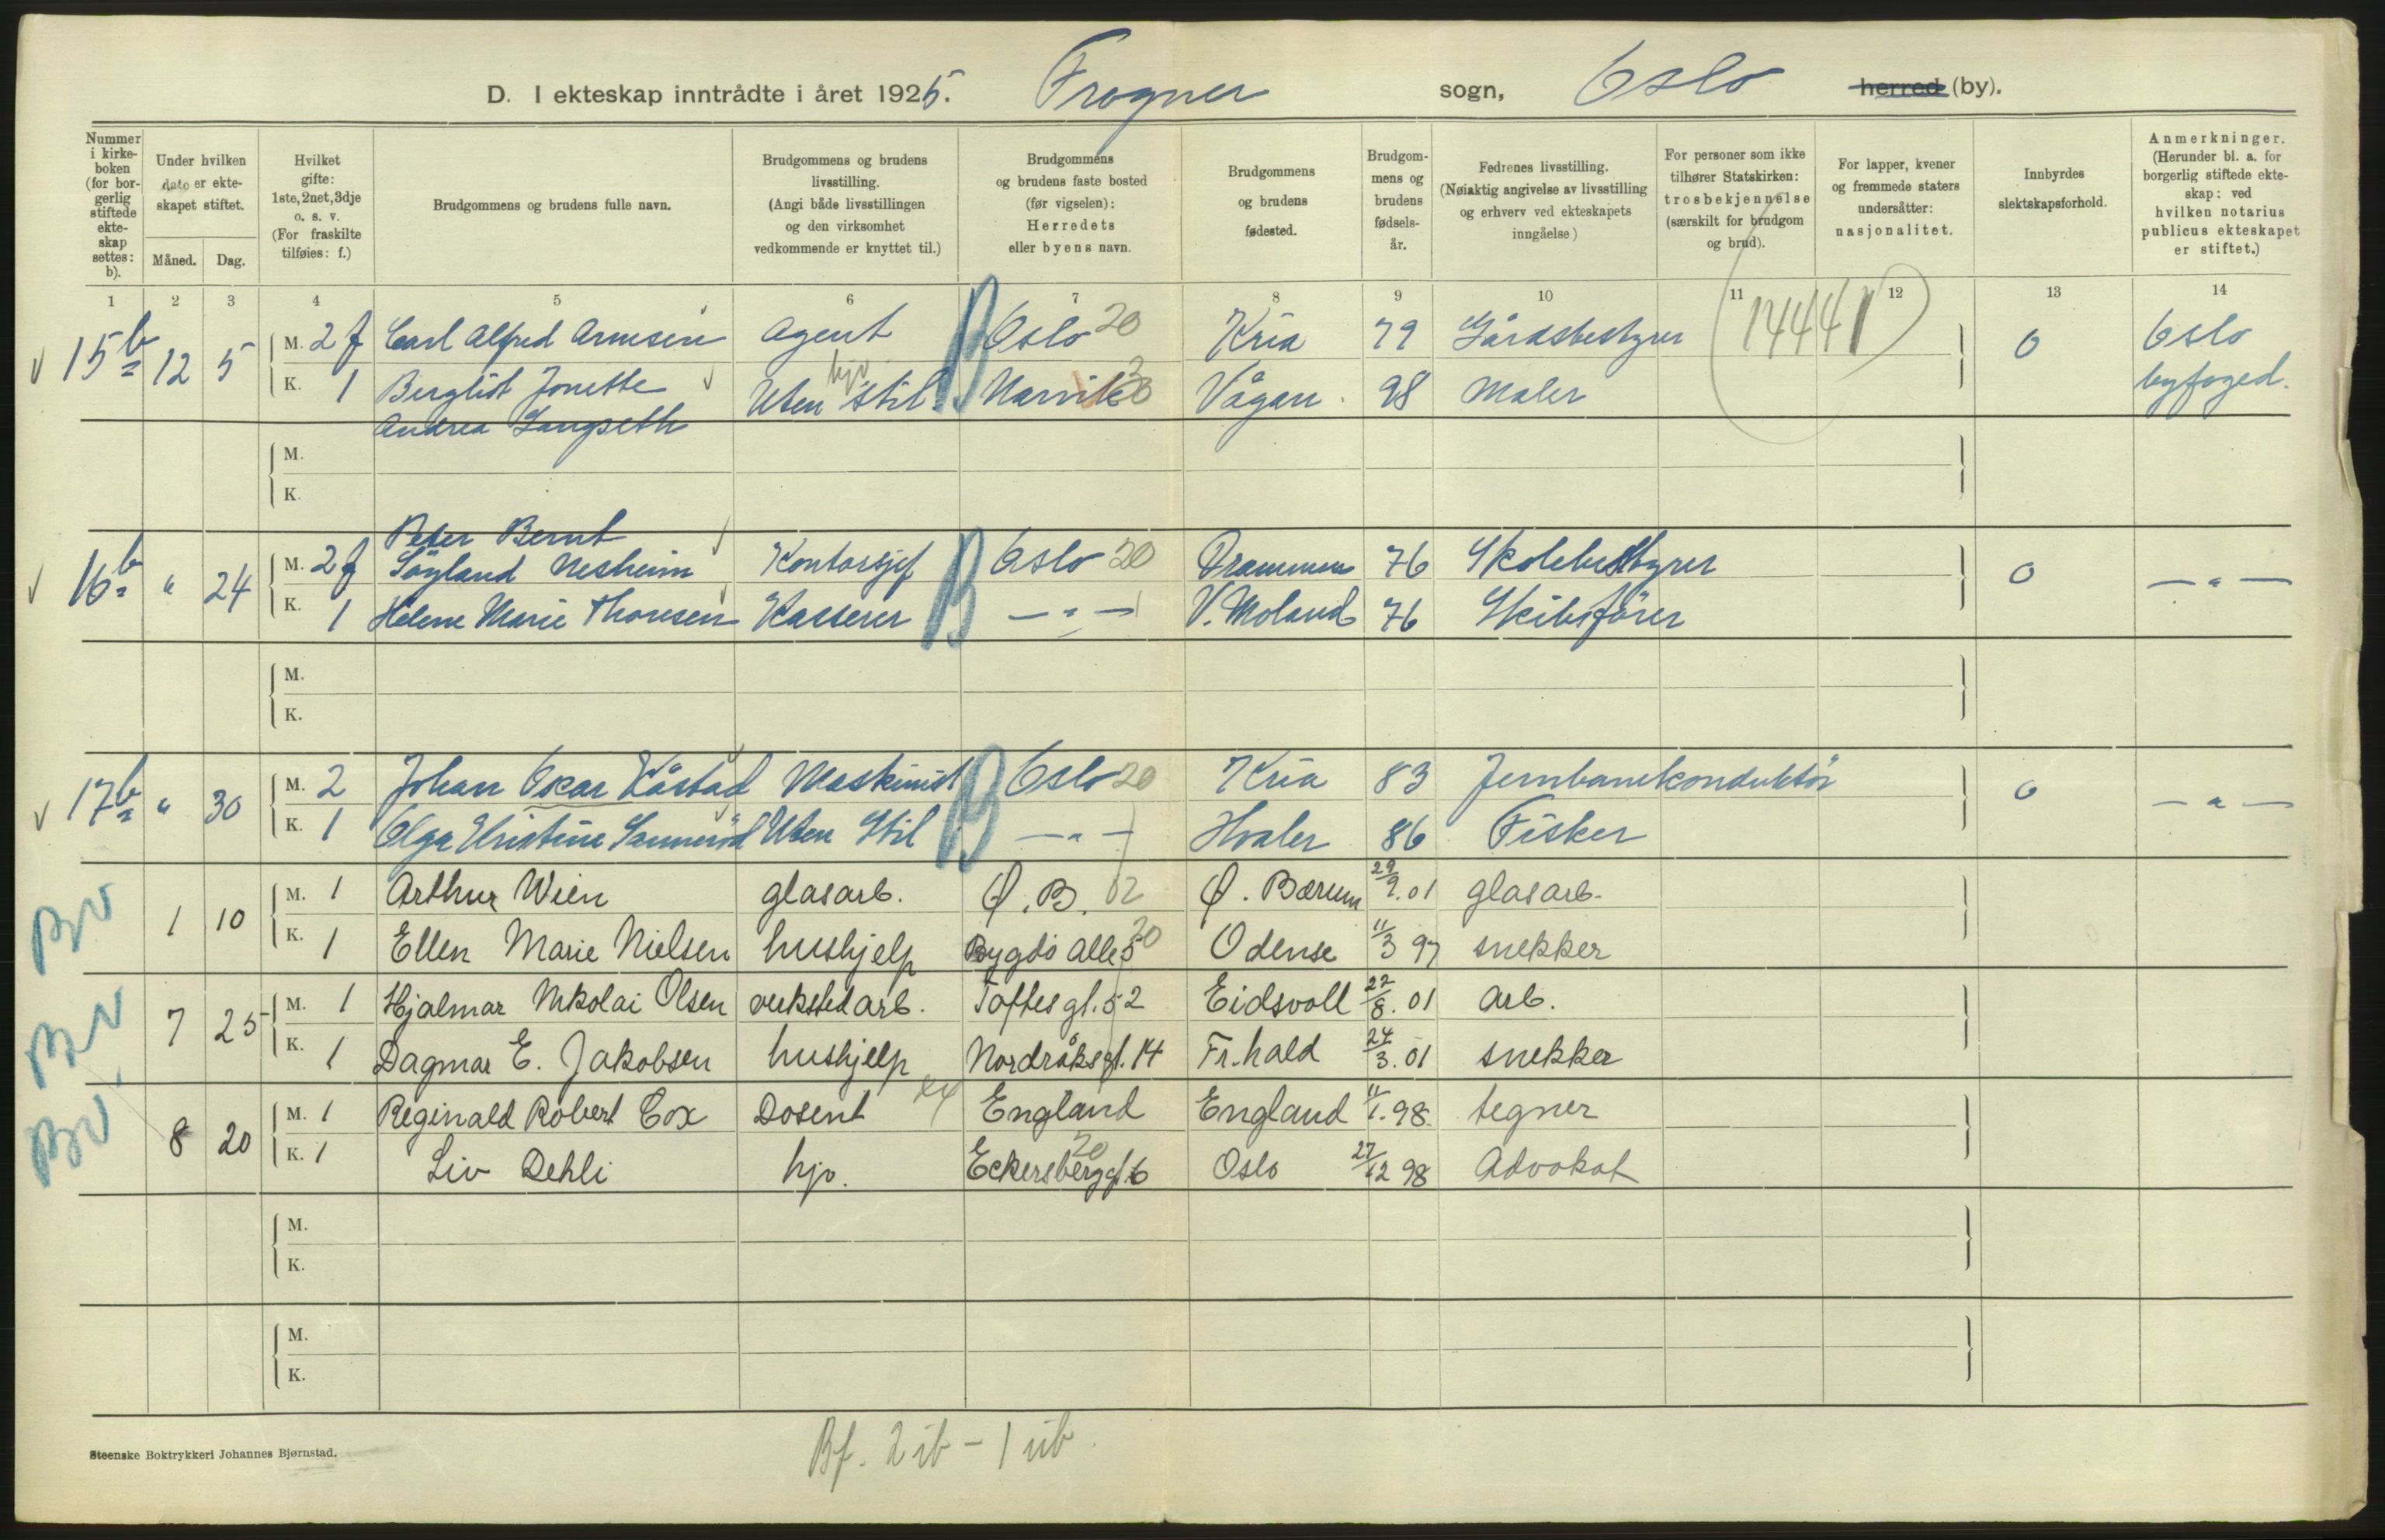 D. I ekteskap inntrådte i året 1925. Frogner sogn, Oslo herred (by).
Nummer i kirkeboken (for borgerlig stiftede ekteskap settes: b).
Under hvilken dato er ekteskapet stiftet.
Måned. Dag.
Hvilket gifte: 1ste, 2net, 3dje o. s. v. (For fraskilte tilføies: f.)
Brudgommens og brudens fulle navn.
Brudgommens og brudens livsstilling. (Angi både livsstillingen og den virksomhet vedkommende er knyttet til.)
Brudgommens og brudens faste bosted (før vigselen): Herredets eller byens navn.
Brudgommens og brudens fødested.
Brudgommens og brudens fødselsår.
Fedrenes livsstilling. (Nøiaktig angivelse av livsstilling og erhverv ved ekteskapets inngåelse)
For personer som ikke tilhører Statskirken: trosbekjennelse (særskilt for brudgom og brud).
For lapper, kvener og fremmede staters undersåtter: nasjonalitet.
Innbyrdes slektskapsforhold.
Anmerkninger. (Herunder bl. a. for borgerlig stiftede ekteskap: ved hvilken notarius publicus ekteskapet er stiftet.)
1 2 3 4 5 6 7 8 9 10 11 12 13 14
15 b 12 5 M. 2 f Carl Alfred Arnesen Agent B Oslo 20 Kria 79 Gårdsbestyrer (14441) 0 Oslo byfoged.
K. 1 Bergliot Jonette Andrea Langseth Uten stil. hjv Narvik Vågan. 98 Maler
M.
K.
16 b " 24 M. 2 f Peter Bernt Søyland Nesheim Kontorsjef B Oslo 20 Drammen 76 Skolebestyrer 0 — " —
K. 1 Helene Marie Thoresen Kasserer — " — V. Moland 76 Skibsfører
M.
K.
17 b " 30 M. 2 Johan Oscar Kåstad Maskinist B Oslo 20 Kria 83 Jernbanekonduktør 0 — " —
K. 1 Olga Kristine Sannerød Uten Stil — " — Hvaler 86 Fisker
Bv 1 10 M. 1 Arthur Wien glasarb. Ø. B. 02 Ø. Bærum 29/9. 01 glasarb.
K. 1 Ellen Marie Nielsen hushjelp Bygdø Alle 5 20 Odense 11/3 97 snekker
Bv 7 25 M. 1 Hjalmar Nikolai Olsen verkstedarb. Toftesgt. 52 Eidsvoll 22/8. 01 arb.
K. 1 Dagmar E. Jakobsen hushjelp Nordråksgt. 14 Fr.hald 24/3. 01 snekker
Bv 8 20 M. 1 Reginald Robert Cox Dosent England England 11/1. 98. tegner
K. 1 Liv Dehli hjv. Eckersberggt. 6 20 Oslo 27/12 98 Advokat
M.
K.
M.
K.
Steenske Boktrykkeri Johannes Bjørnstad.
Bf. 2 ib - 1 ub.